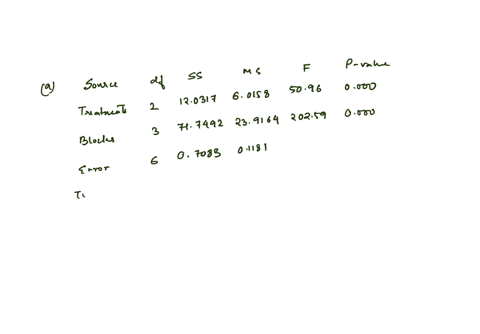 (a) Source df SS MS F P-value
Treatments 2 12.0317 6.0158 50.96 0.000
Blocks 3 71.7492 23.9164 202.59 0.000
Error 6 0.7083 0.1181
T